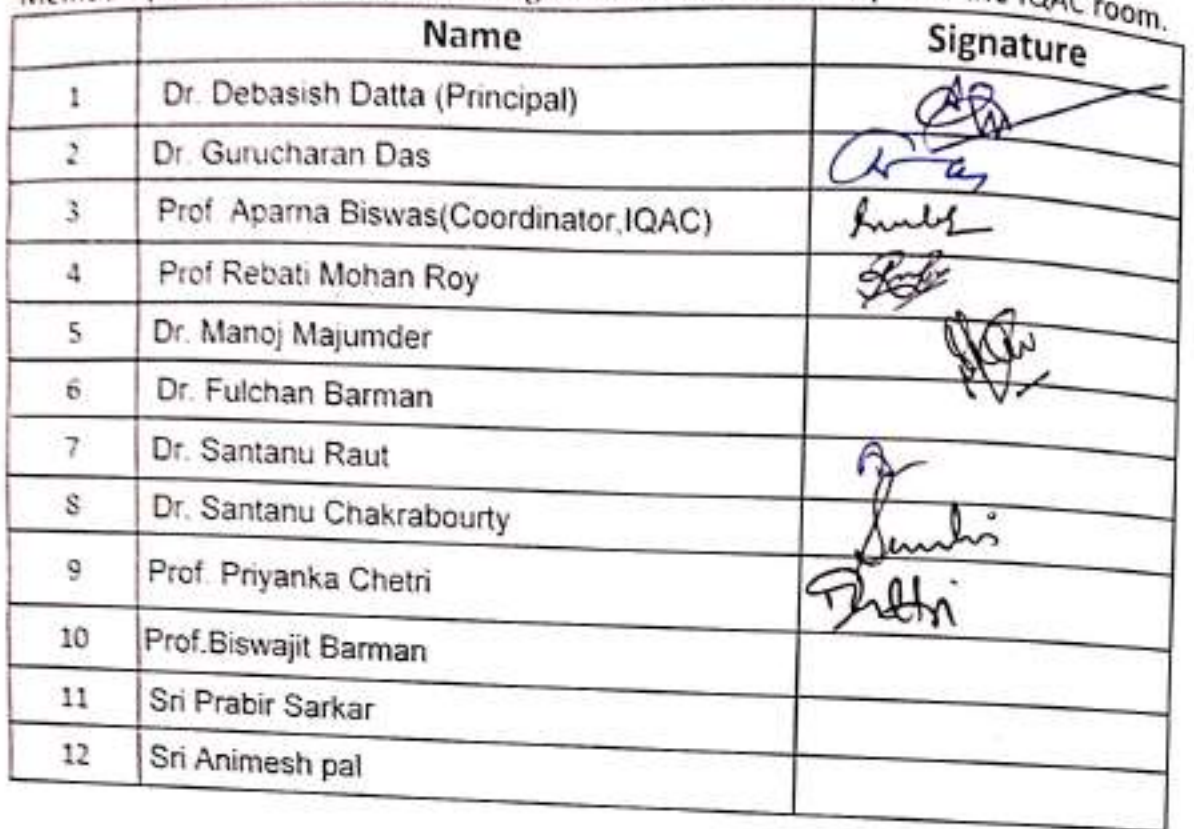 IQAC room.
Name Signature
1 Dr. Debasish Datta (Principal)
2 Dr. Gurucharan Das
3 Prof Aparna Biswas(Coordinator,IQAC)
4 Prof Rebati Mohan Roy
5 Dr. Manoj Majumder
6 Dr. Fulchan Barman
7 Dr. Santanu Raut
8 Dr. Santanu Chakrabourty
9 Prof. Priyanka Chetri
10 Prof.Biswajit Barman
11 Sri Prabir Sarkar
12 Sri Animesh pal